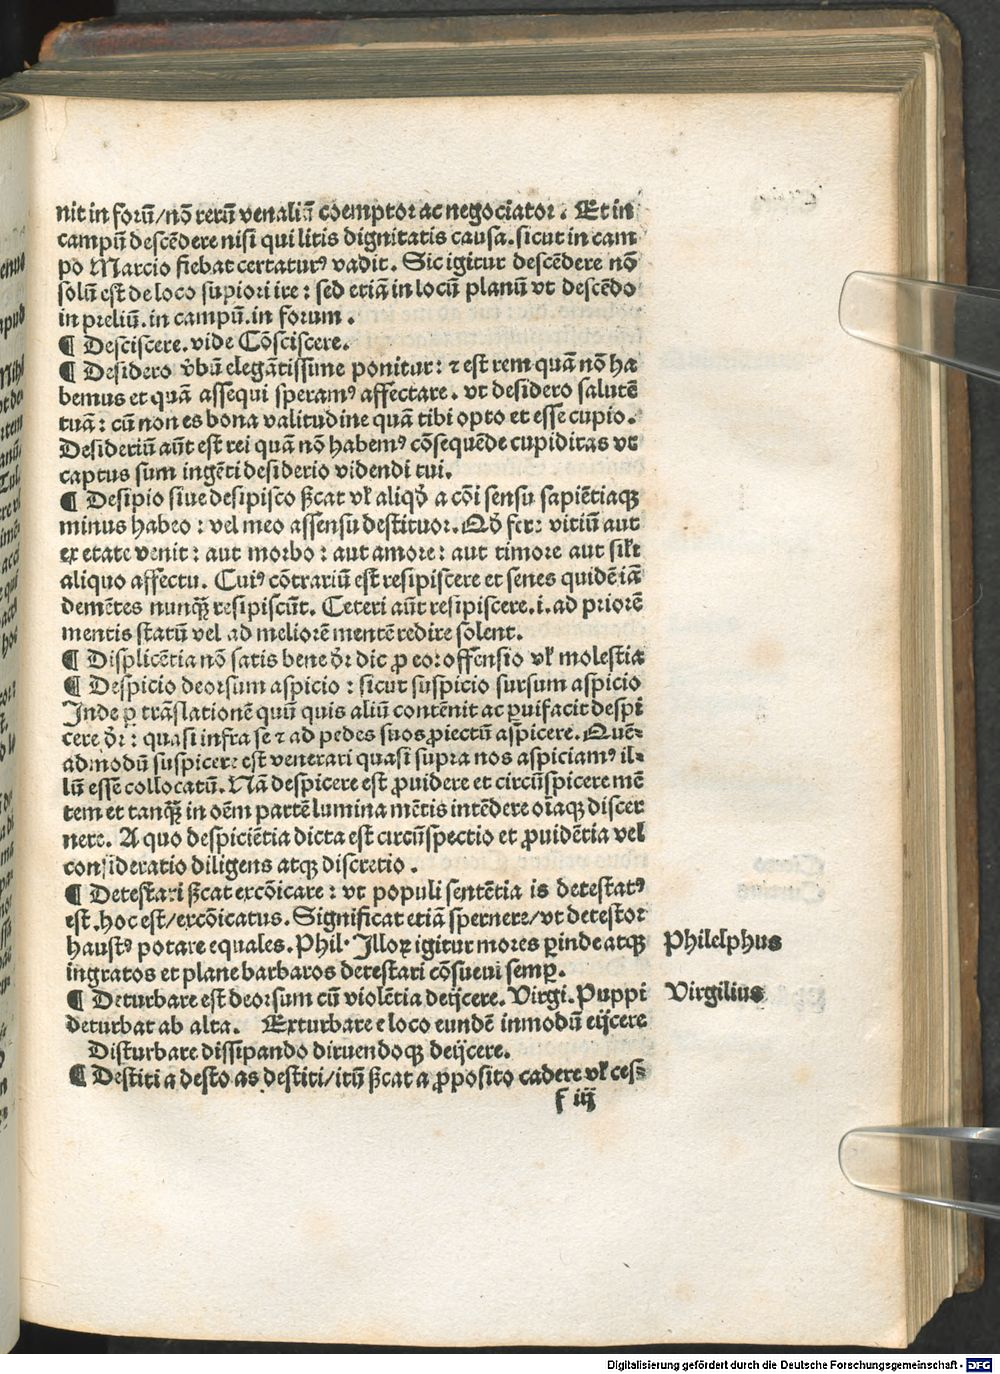 nit in forū/nō rerū venaliū coemptor ac negociator. Et in
campū descēdere nisi qui litis dignitatis causa. sicut in cam
po Marcio fiebat certaturꝰ vadit. Sic igitur descēdere nō
solū est de loco supiori ire: sed etiā in locū planū vt descēdo
in preliū. in campū. in forum.
¶ Desciscere. vide Cōsciscere.
¶ Desidero v̄bū elegātissime ponitur: ⁊ est rem quā nō ha
bemus et quā assequi speramꝰ affectare. vt desidero salutē
tuā: cū non es bona valitudine quā tibi opto et esse cupio.
Desideriū aūt est rei quā nō habemꝰ cōsequēde cupiditas vt
captus sum ingēti desiderio videndi tui.
¶ Desipio siue desipisco ſ̄cat vꝉ aliqð a cōi sensu sapiētiaqꝫ
minus habeo: vel meo assensu destituor. Qð fer: vitiū aut
ex etate venit: aut morbo: aut amore: aut timore aut siłr
aliquo affectu. Cuiꝰ cōtrariū est resipiscere et senes quidē iā
demētes nunqꝫ̄ resipiscūt. Ceteri aūt resipiscere .i. ad priorē
mentis statū vel ad meliorē mentē redire solent.
¶ Displicētia nō satis bene d̄r dic ꝓ eo: offensio vꝉ molestia
¶ Despicio deorsum aspicio: sicut suspicio sursum aspicio
Inde ꝑ trāslationē quū quis aliū contēnit ac ꝑuifacit despi
cere d̄r: quasi infra se ⁊ ad pedes suos ꝓiectū aspicere. Quē-
admodū suspicere est venerari quasi supra nos aspiciamꝰ il-
lū esse collocatū. Nā despicere est ꝓuidere et circūspicere mē
tem et tanqꝫ̄ in oēm partē lumina mētis intēdere oīaqꝫ discer
nere. A quo despiciētia dicta est circūspectio et ꝓuidētia vel
consideratio diligens atqꝫ discretio.
¶ Detestari ſ̄cat excōicare: vt populi sentētia is detestatꝰ
est. hoc est/excōicatus. Significat etiā spernere/vt detestor
haustꝰ potare equales. Phil. Illoꝝ igitur mores ꝑinde atqꝫ
Philelphus
ingratos et plane barbaros detestari cōsueui semꝑ.
¶ Deturbare est deorsum cū violētia deijcere. Virgi. Puppi
Virgilius
deturbat ab alta. Exturbare e loco eundē in modū eijcere
Disturbare dissipando diruendoqꝫ deijcere.
¶ Destiti a desto as destiti/itū ſ̄cat a ꝓposito cadere vꝉ ces-
f iij
Digitalisierung gefördert durch die Deutsche Forschungsgemeinschaft - DFG